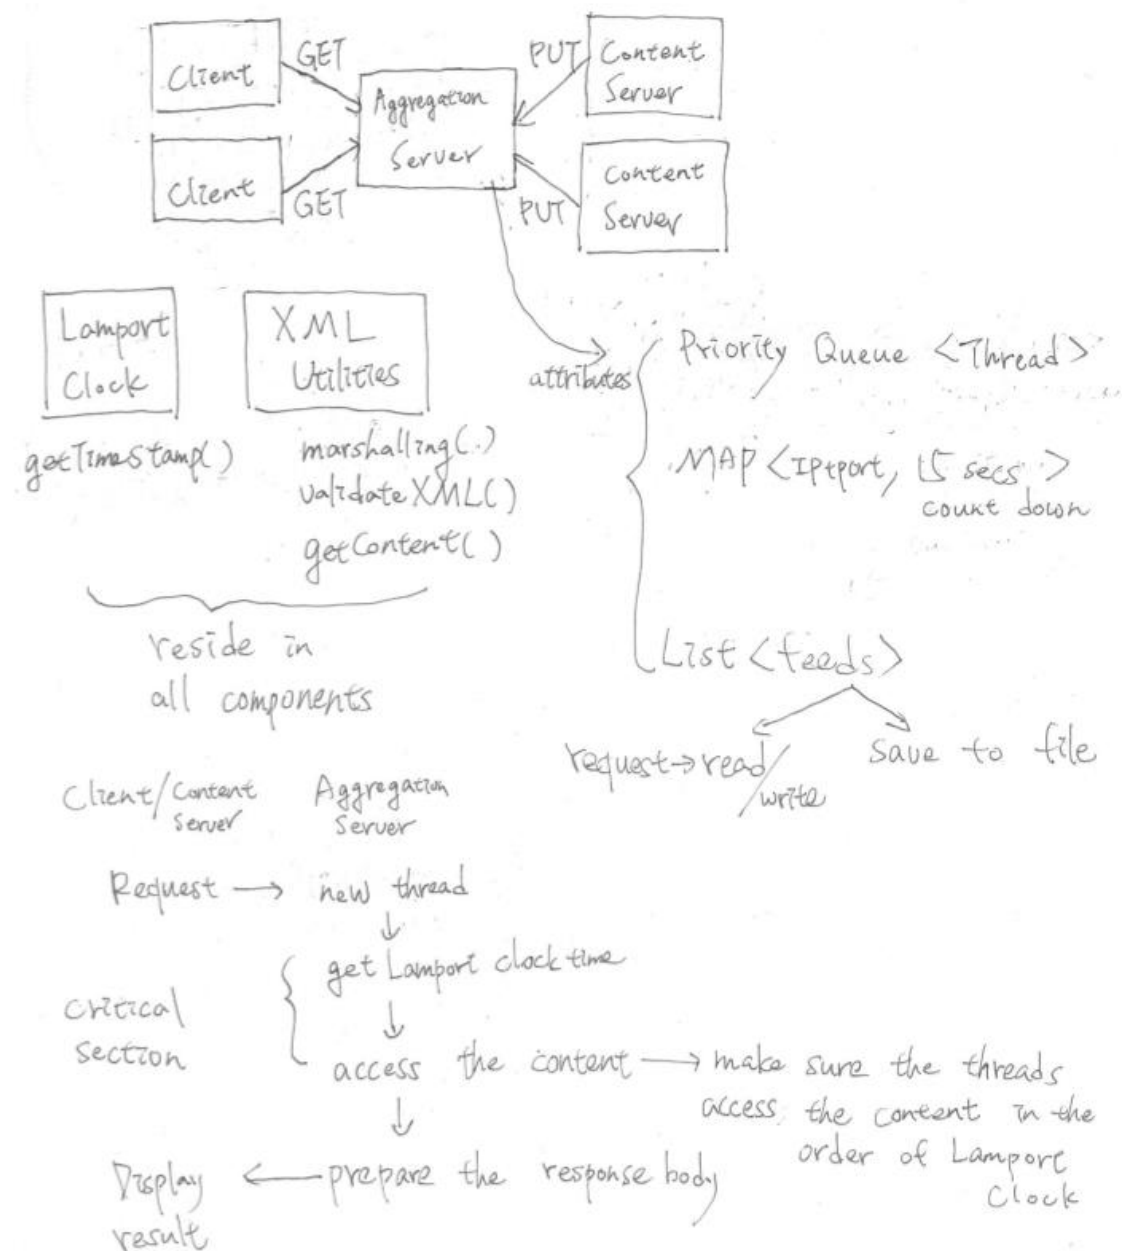 Client
GET
Aggregation
Server
PUT
Content
Server
Client
GET
PUT
Content
Server
Lamport
Clock
getTimeStamp()
XML
Utilities
marshalling(.)
validateXML()
getContent()
reside in
all components
attributes
Priority Queue <Thread>
MAP <IP+port, 15 secs>
count down
List <feeds>
request→read/
write
save to file
Client/Content
Server
Aggregation
Server
Request → new thread
↓
get Lamport clock time
↓
critical
section
access the content → make sure the threads
access the content in the
order of Lamport
Clock
↓
Display
result
← prepare the response body